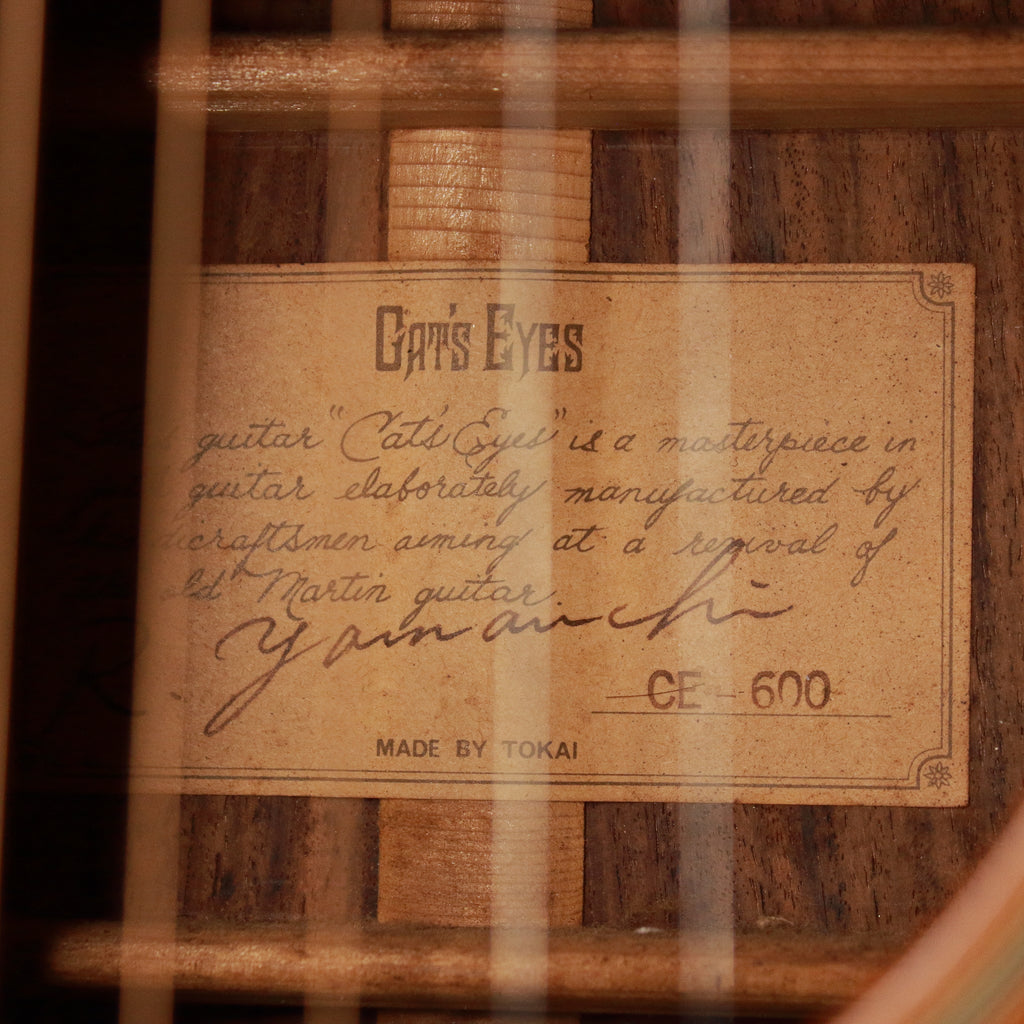 CAT'S EYES
guitar "Cat's Eyes" is a masterpiece in
guitar elaborately manufactured by
dicraftsmen aiming at a revival of
old Martin guitar
Yamauchi
CE-600
MADE BY TOKAI